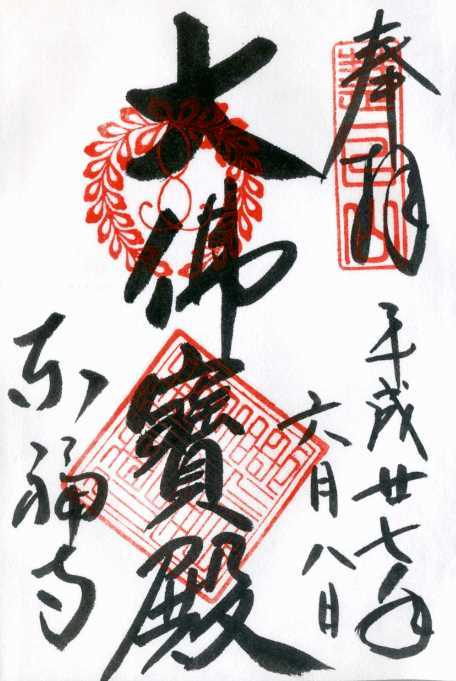 奉拝
平成廿七年
六月八日
大佛寶殿
东福寺